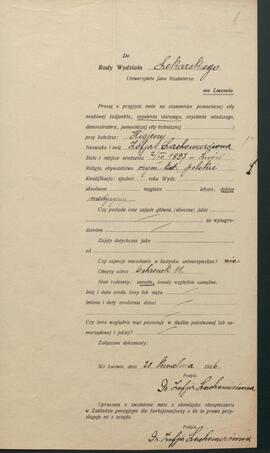 Do
Rady Wydziału Lekarskiego
Uniwersytetu Jana Kazimierza
we Lwowie.
Proszę o przyjęcie mnie na stanowisko pomocniczej siły
naukowej (adjunkta, asystenta starszego, asystenta młodszego,
demonstratora, pomocniczej siły technicznej)
przy katedrze: Higieny
Nazwisko i imię Zofja
Data i miejsce urodzenia 1897
Religja, obywatelstwo rzym. kat. polskie
Kwalifikacje: student roku Wydz.
absolwent magister lekarz, doktor
medycyny
Czy posiada inne zajęcie główne, (uboczne) jakie
za wynagro-
dzeniem.
Zajęty dotychczas jako
od
Czy zajmuje mieszkanie w budynku uniwersyteckim? nie
Obecny adres 11.
Stan rodzinny: żonaty względnie zamężna.
Imię i data urodz. żony lub męża
Imiona i daty urodzenia dzieci
Czy żona względnie mąż pozostaje w służbie państwowej lub sa-
morządowej i jakiej?
Załączam dokumenty:
We Lwowie, dnia 20 kwietnia 1926
Podpis.
Dr. Zofja
Upraszam o zwolnienie mnie z obowiązku ubezpieczenia
w Zakładzie pensyjnym dla funkcjonarjuszy o ile to prawo przy-
sługuje mi z urzędu.
Podpis.
Dr. Zofja